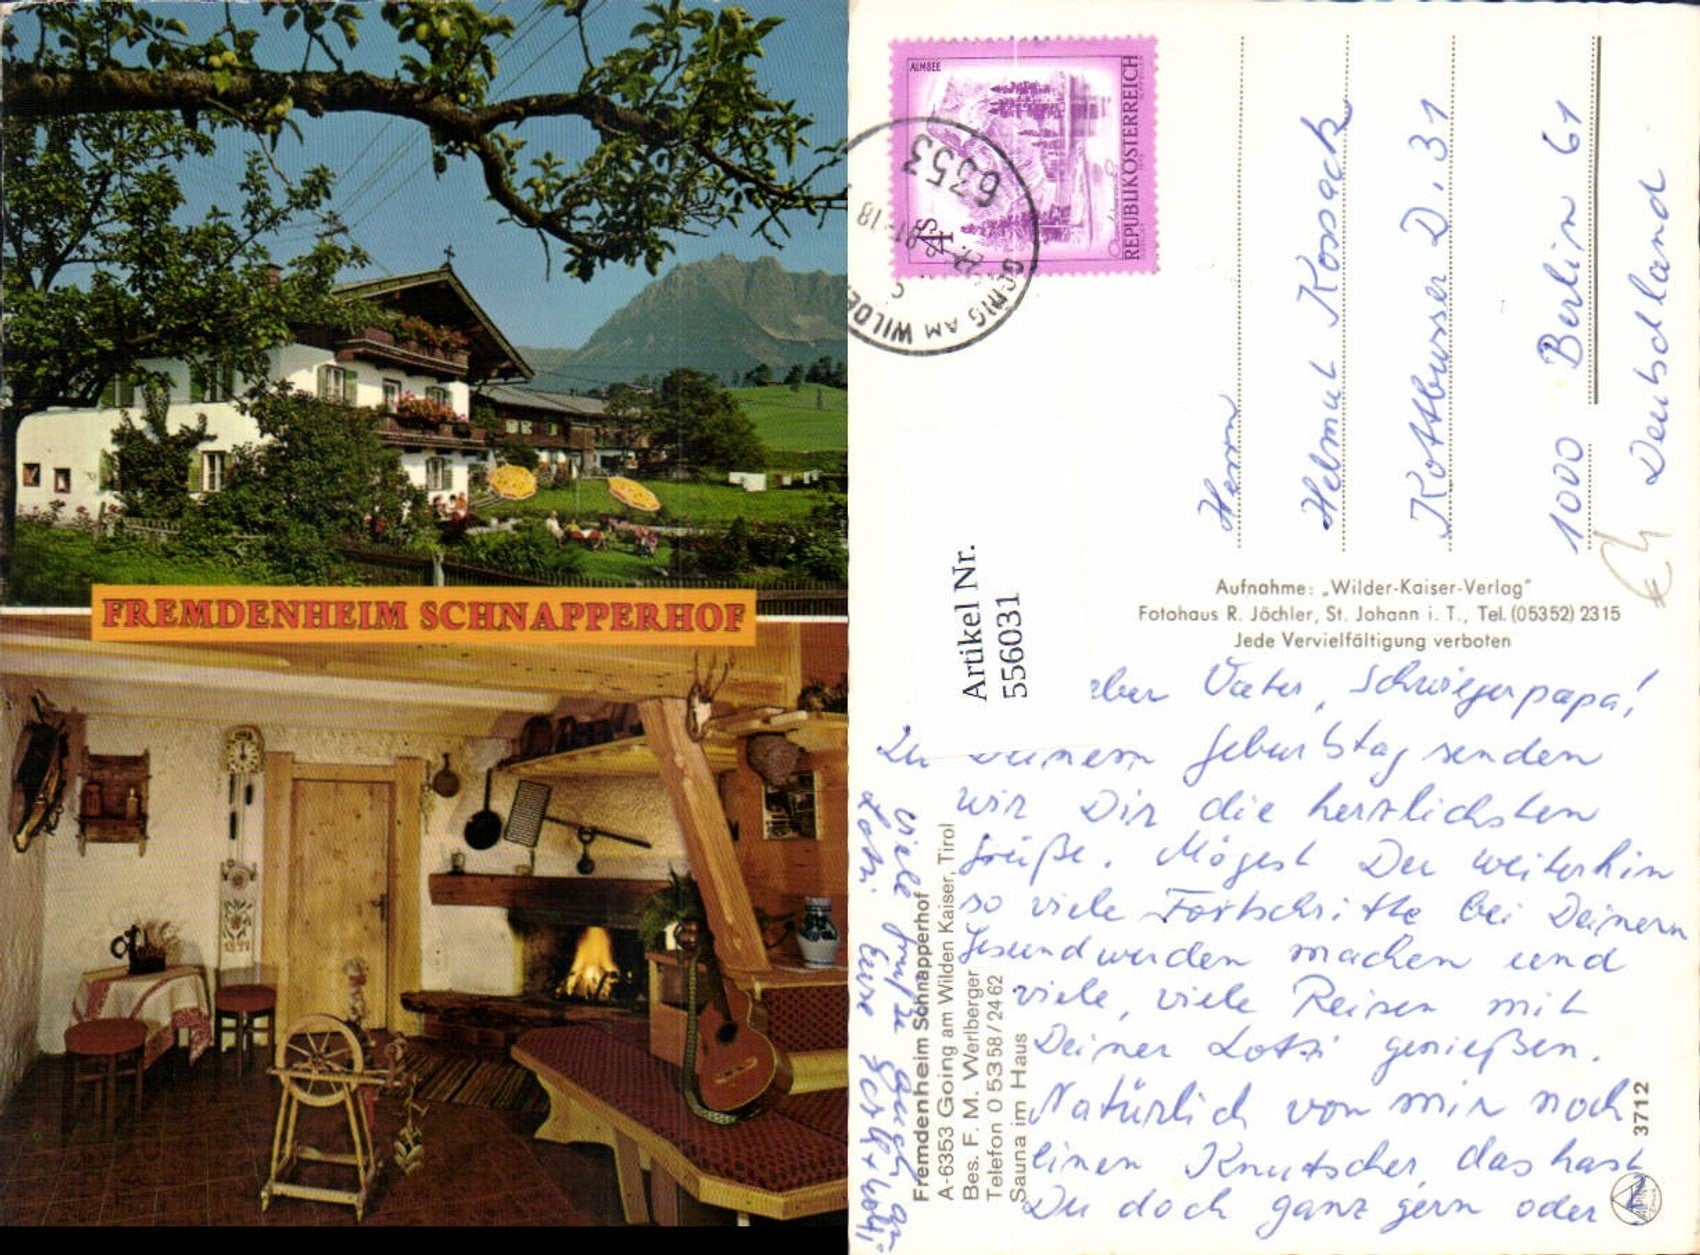 FREMDENHEIM SCHNAPPERHOF
ALMSEE
REPUBLIK ÖSTERREICH
S4
6353
GOING AM WILDE
-18
Herrn
Helmut Kossack
Kottbusser D. 31
1000 Berlin 61
Deutschland
Aufnahme: „Wilder-Kaiser-Verlag"
Fotohaus R. Jöchler, St. Johann i. T., Tel. (05352) 2315
Jede Vervielfältigung verboten
Artikel Nr.
556031
eber Vater, Schwiegerpapa!
Zu Deinem Geburtstag senden
wir Dir die herzlichsten
Grüße. Mögest Du weiterhin
so viele Fortschritte bei Deinem
Gesundwerden machen und
viele, viele Reisen mit
Deiner Lotzi genießen.
Natürlich von mir noch
einen Knutscher, das hast
Du doch ganz gern oder
viele Grüße auch an
Lotzi Eure
Fremdenheim Schnapperhof
A-6353 Going am Wilden Kaiser, Tirol
Bes. F. M. Werlberger
Telefon 0 53 58 / 24 62
Sauna im Haus
3712